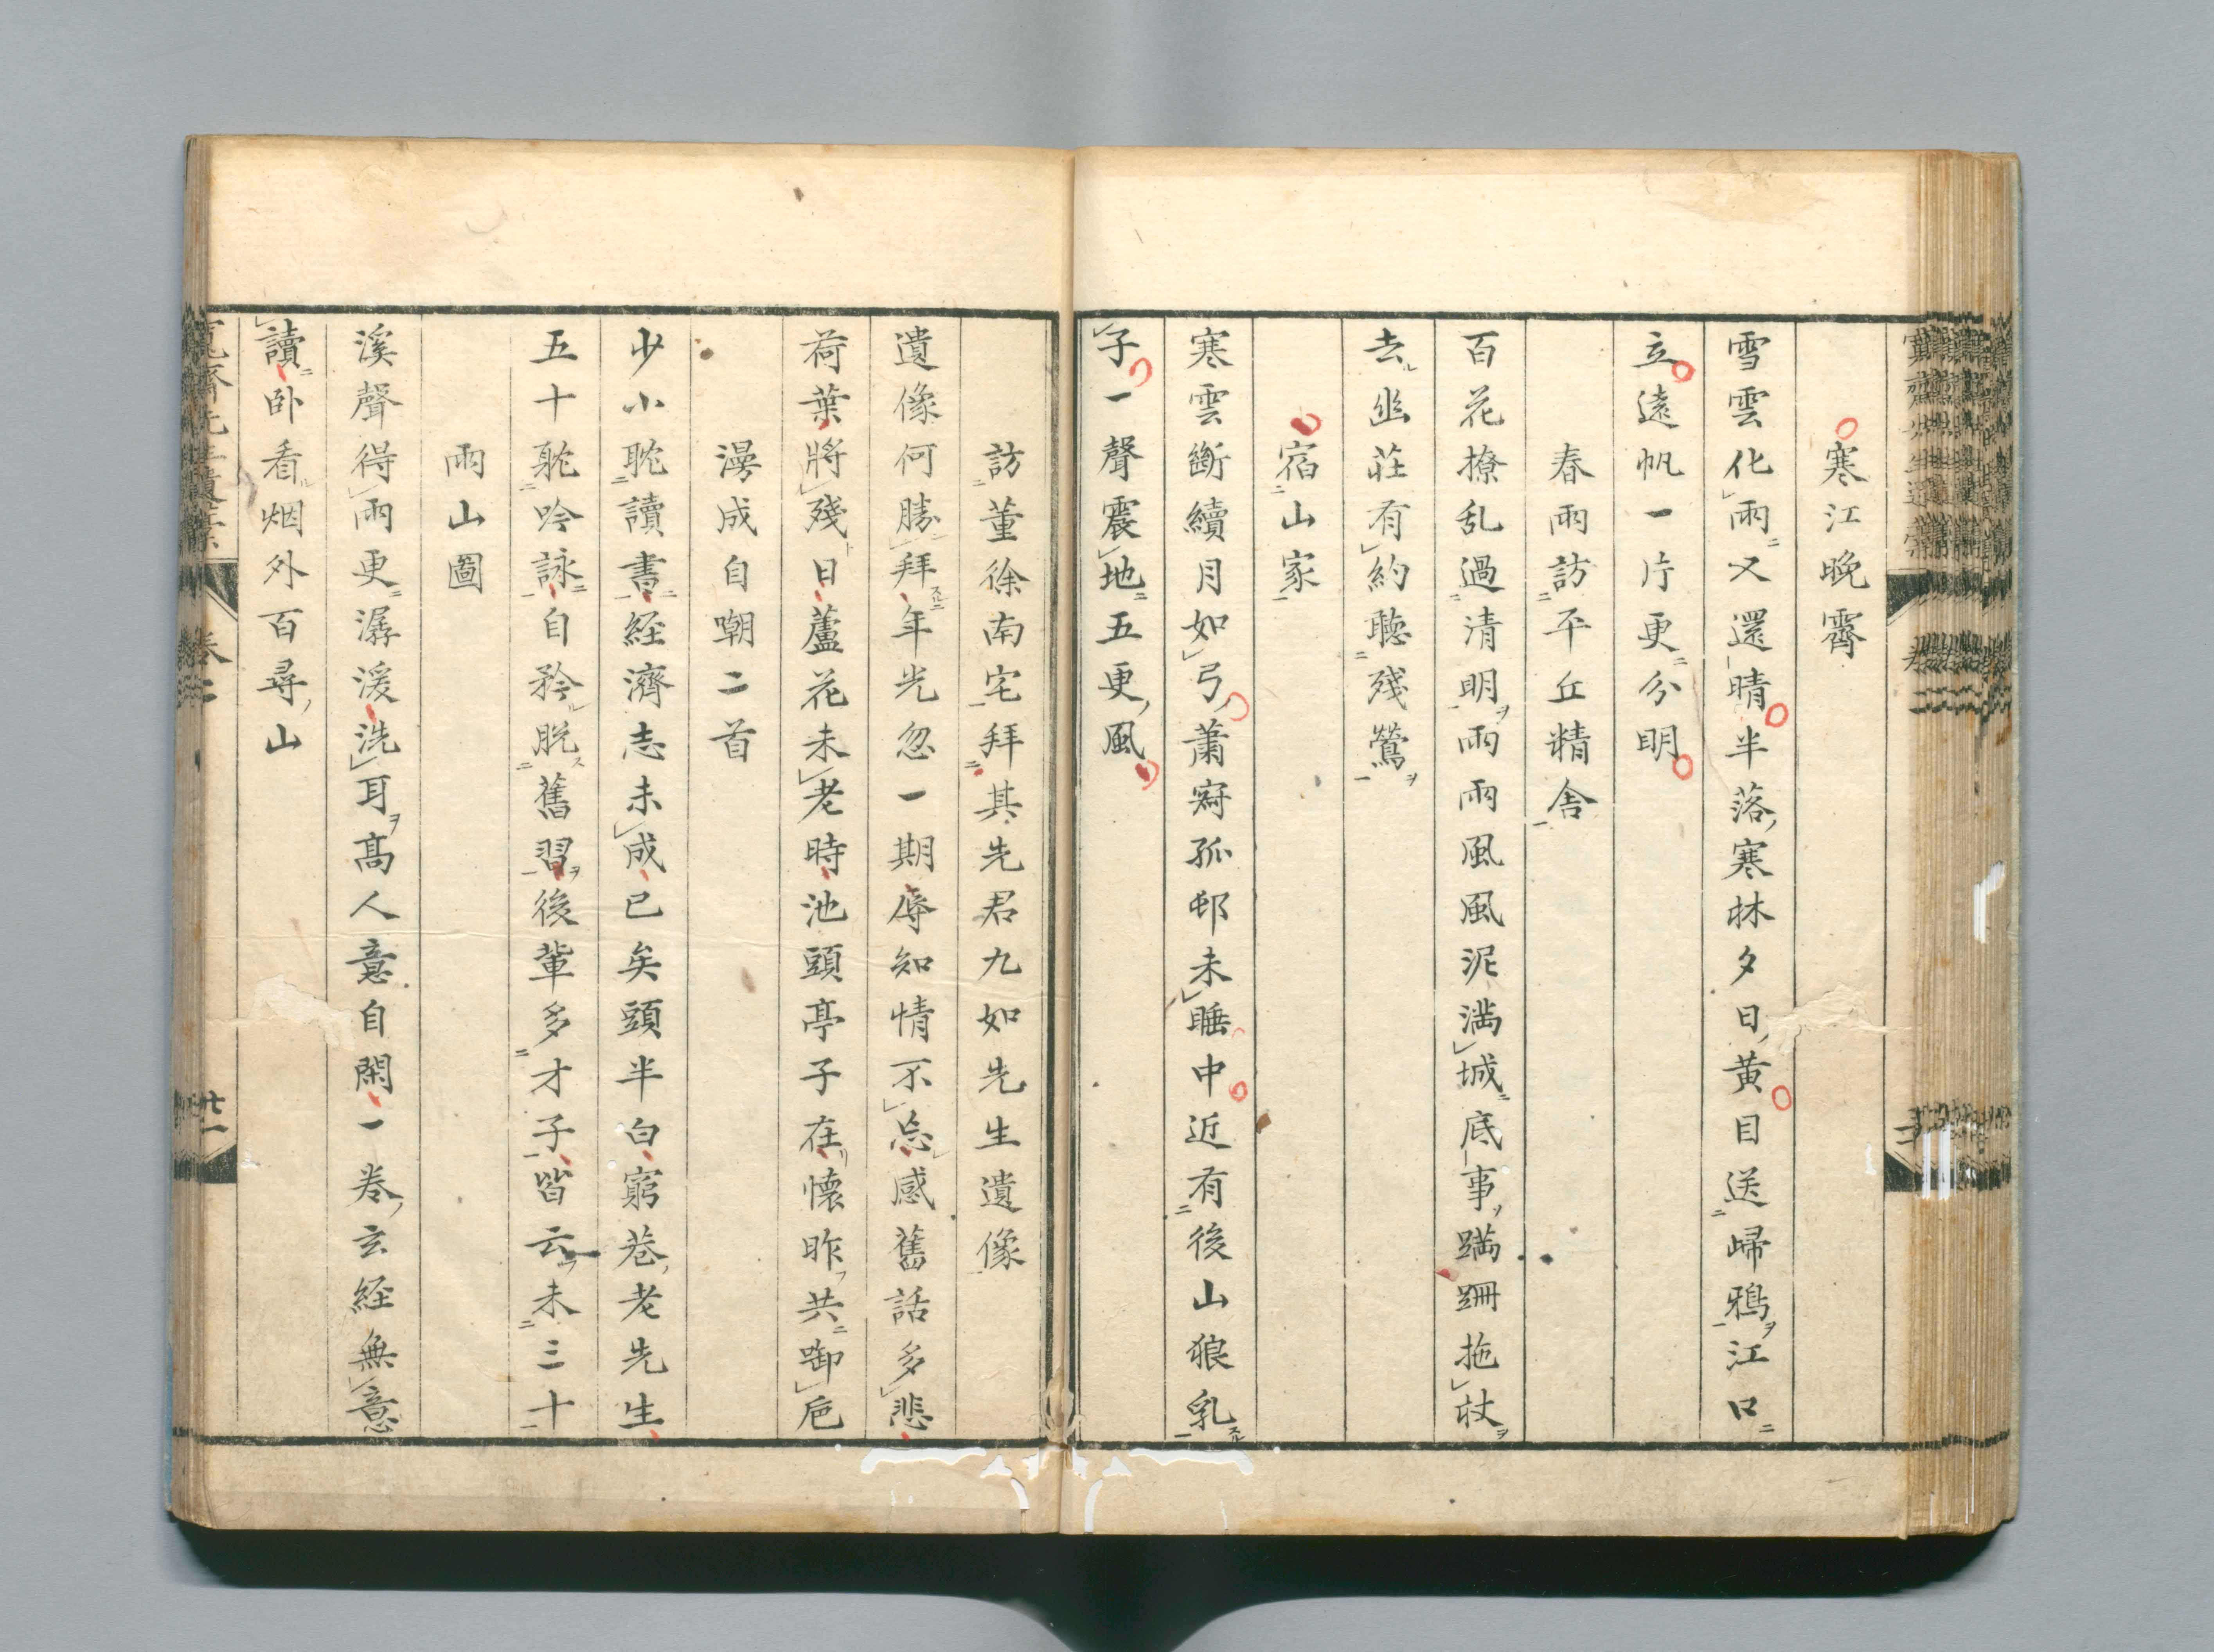 寒江晩霽
雪雲化雨又還晴半落寒林夕日黄目送歸鴉江口
立遠帆一片更分明
春雨訪平丘精舎
百花撩乱過清明雨雨風風泥満城底事蹣跚拖杖
去幽莊有約聴残鶯
宿山家
寒雲断續月如弓蕭寂孤邨未睡中近有後山狼乳
子一聲震地五更風
訪董徐南宅拜其先君九如先生遺像
遺像何勝拜年光忽一期辱知情不忘感舊話多悲
荷葉將殘日蘆花未老時池頭亭子在懷昨共啣卮
漫成自嘲二首
少小耽讀書経濟志未成已矣頭半白窮巷老先生
五十耽吟詠自矜脱舊習後輩多才子皆云未三十
雨山圖
溪聲得雨更潺湲洗耳髙人意自閑一巻玄経無意
讀卧看烟外百尋山
寛齋先生遺稾 巻二 廿一